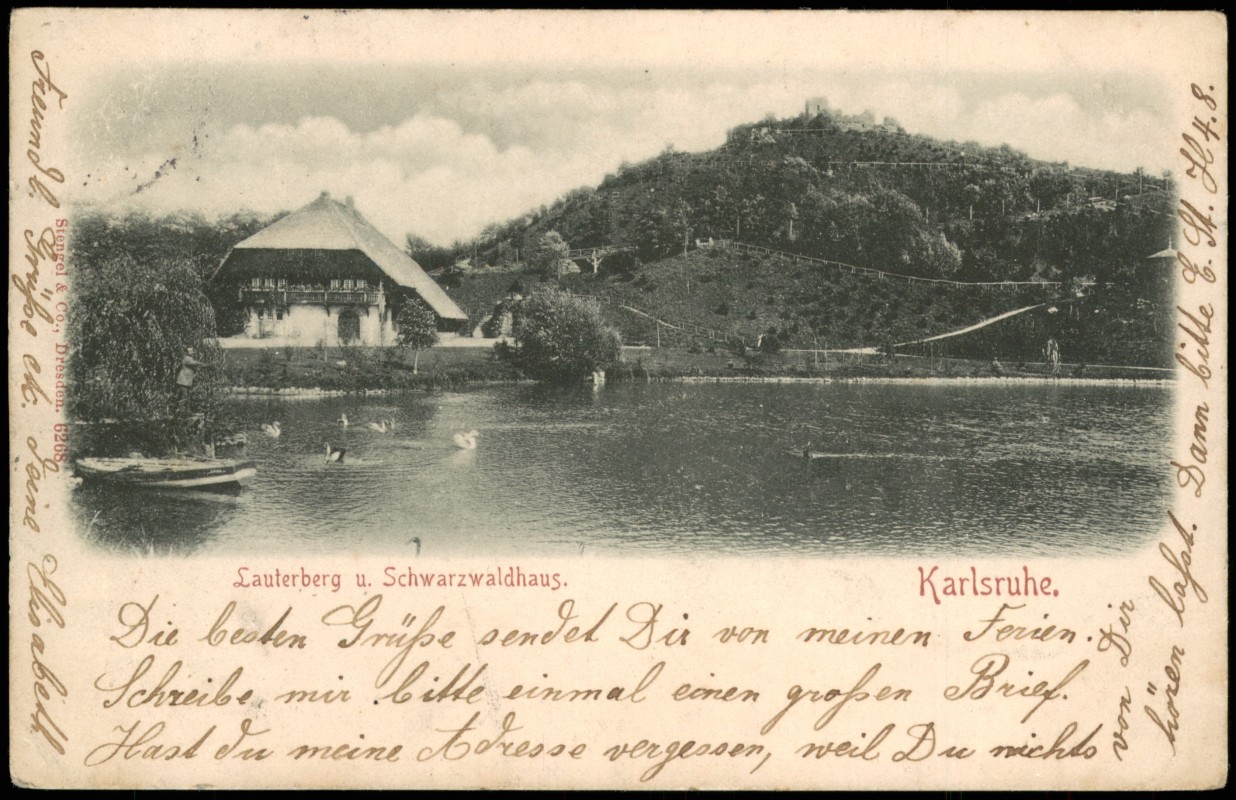 Lauterberg u. Schwarzwaldhaus.
Karlsruhe.
Die besten Grüße sendet Dir von meinen Ferien.
Schreibe mir bitte einmal einen großen Brief.
Hast du meine Adresse vergessen, weil Du nichts
von Dir
hören laßst. Dann bitte E. St. H 4.8.
Freundl. Grüße etc. Deine Elisabeth
Stengel & Co., Dresden. 6268